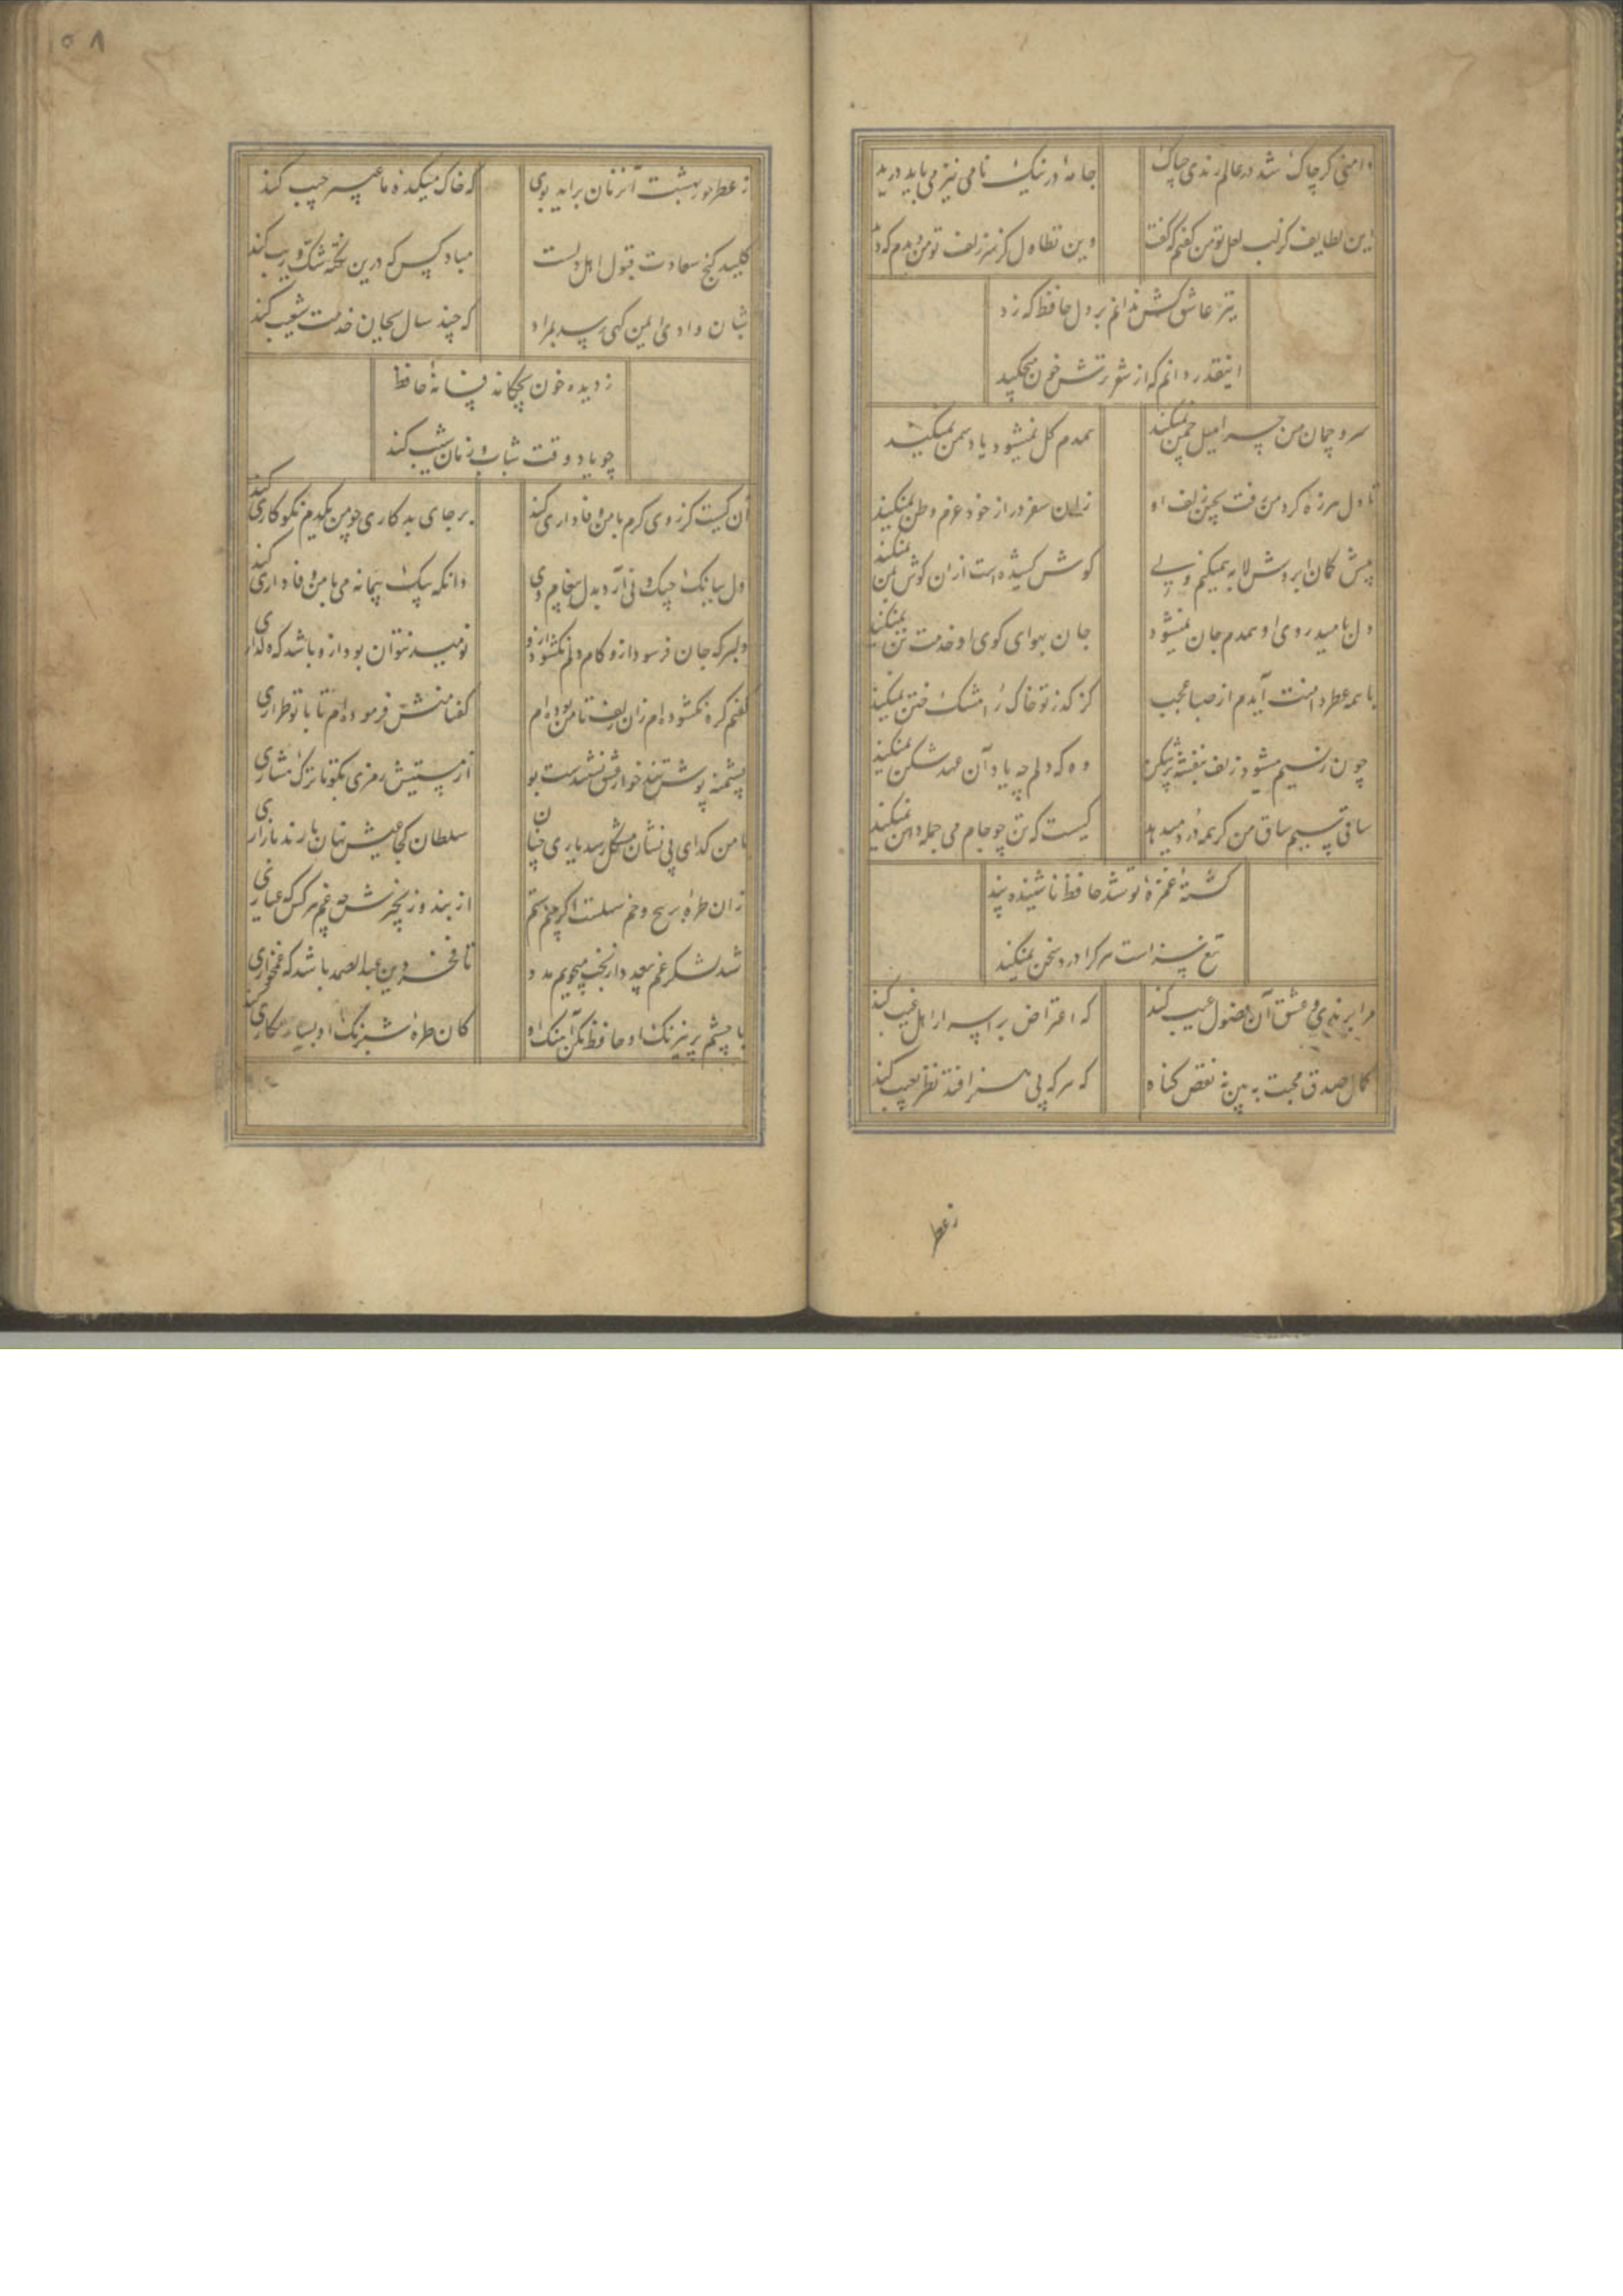 دامنی کر چاک شد در عالم رندی چاک جامهٔ در نیک نامی نیز می باید درید
این لطایف کز لب لعل تو من کفتم که کفت وین تطاول کز سر زلف تو من دیدم که دید
تیر عاشق کش ندانم بر دل حافظ که زد
اینقدر دانم که از شعر ترش خون میچکید
سرو چمان من چرا میل چمن نمیکند همدم کل نمیشود یاد سمن نمیکند
تا دل هرزه کرد من رفت بچین زلف او زان سفر دراز خود عزم وطن نمیکند
پیش کمان ابروش لابه همیکنم ولی کوش کشیده است ازان کوش بمن نمیکند
دل بامید روی او همدم جان نمیشود جان بهوای کوی او خدمت تن نمیکند
با همه عطر دامنت آیدم از صبا عجب کز کذر تو خاک را مشک ختن نمیکند
چون ز نسیم میشود زلف بنفشه پرشکن وه که دلم چه یاد آن عهد شکن نمیکند
ساقی سیم ساق من کر همه درد میدهد کیست که تن چو جام می جمله دهن نمیکند
کشتهٔ غمزهٔ تو شد حافظ ناشنیده پند
تیغ سزاست هر کرا درد سخن نمیکند
مرا برندی و عشق آن فضول عیب کند که اعتراض بر اسرار اهل غیب کند
کمال صدق محبت به بین نه نقص کناه که هر که بی هنر افتد نظر بعیب کند
زعطر
۵۸
ز عطر حور بهشت آنزمان براید بوی که خاک میکده ما عبیر جیب کند
کلید کنج سعادت قبول اهل دلست مباد کس که درین نکته شک و ریب کند
شبان وادی ایمن کهی رسد بمراد که چند سال بجان خدمت شعیب کند
ز دیده خون بچکاند فسانهٔ حافظ
چو یاد وقت شباب و زمان شیب کند
آن کیست کز روی کرم با من وفاداری کند بر جای بدکاری چو من یکدم نکوکاری کند
اول ببانک چنک و نی آرد بدل پیغام وی وانکه بیک پیمانه می با من وفاداری کند
دلبر که جان فرسود ازو کام دلم نکشود ازو نومید نتوان بود ازو باشد که دلداری
کفتم کره نکشوده ام زان زلف تا من بوده ام کفتا منش فرموده ام تا با تو طراری
پشمینه پوش تند خو از عشق نشنیدست بو از مستیش رمزی بکو تا ترک هشیاری
با من کدای بی نشان مشکل رسد یاری چنان سلطان کجا عیش نهان با رند بازاری
زان طرهٔ پر پیچ و خم سهلست اکر بینم ستم از بند و زنجیرش چه غم هر کس که عیاری
شد لشکر غم بیعدد از بخت میجویم مدد تا فخر دین عبدالصمد باشد که غمخواری
با چشم پر نیرنک او حافظ مکن آهنک او کان طرهٔ شبرنک او بسیار مکاری کند